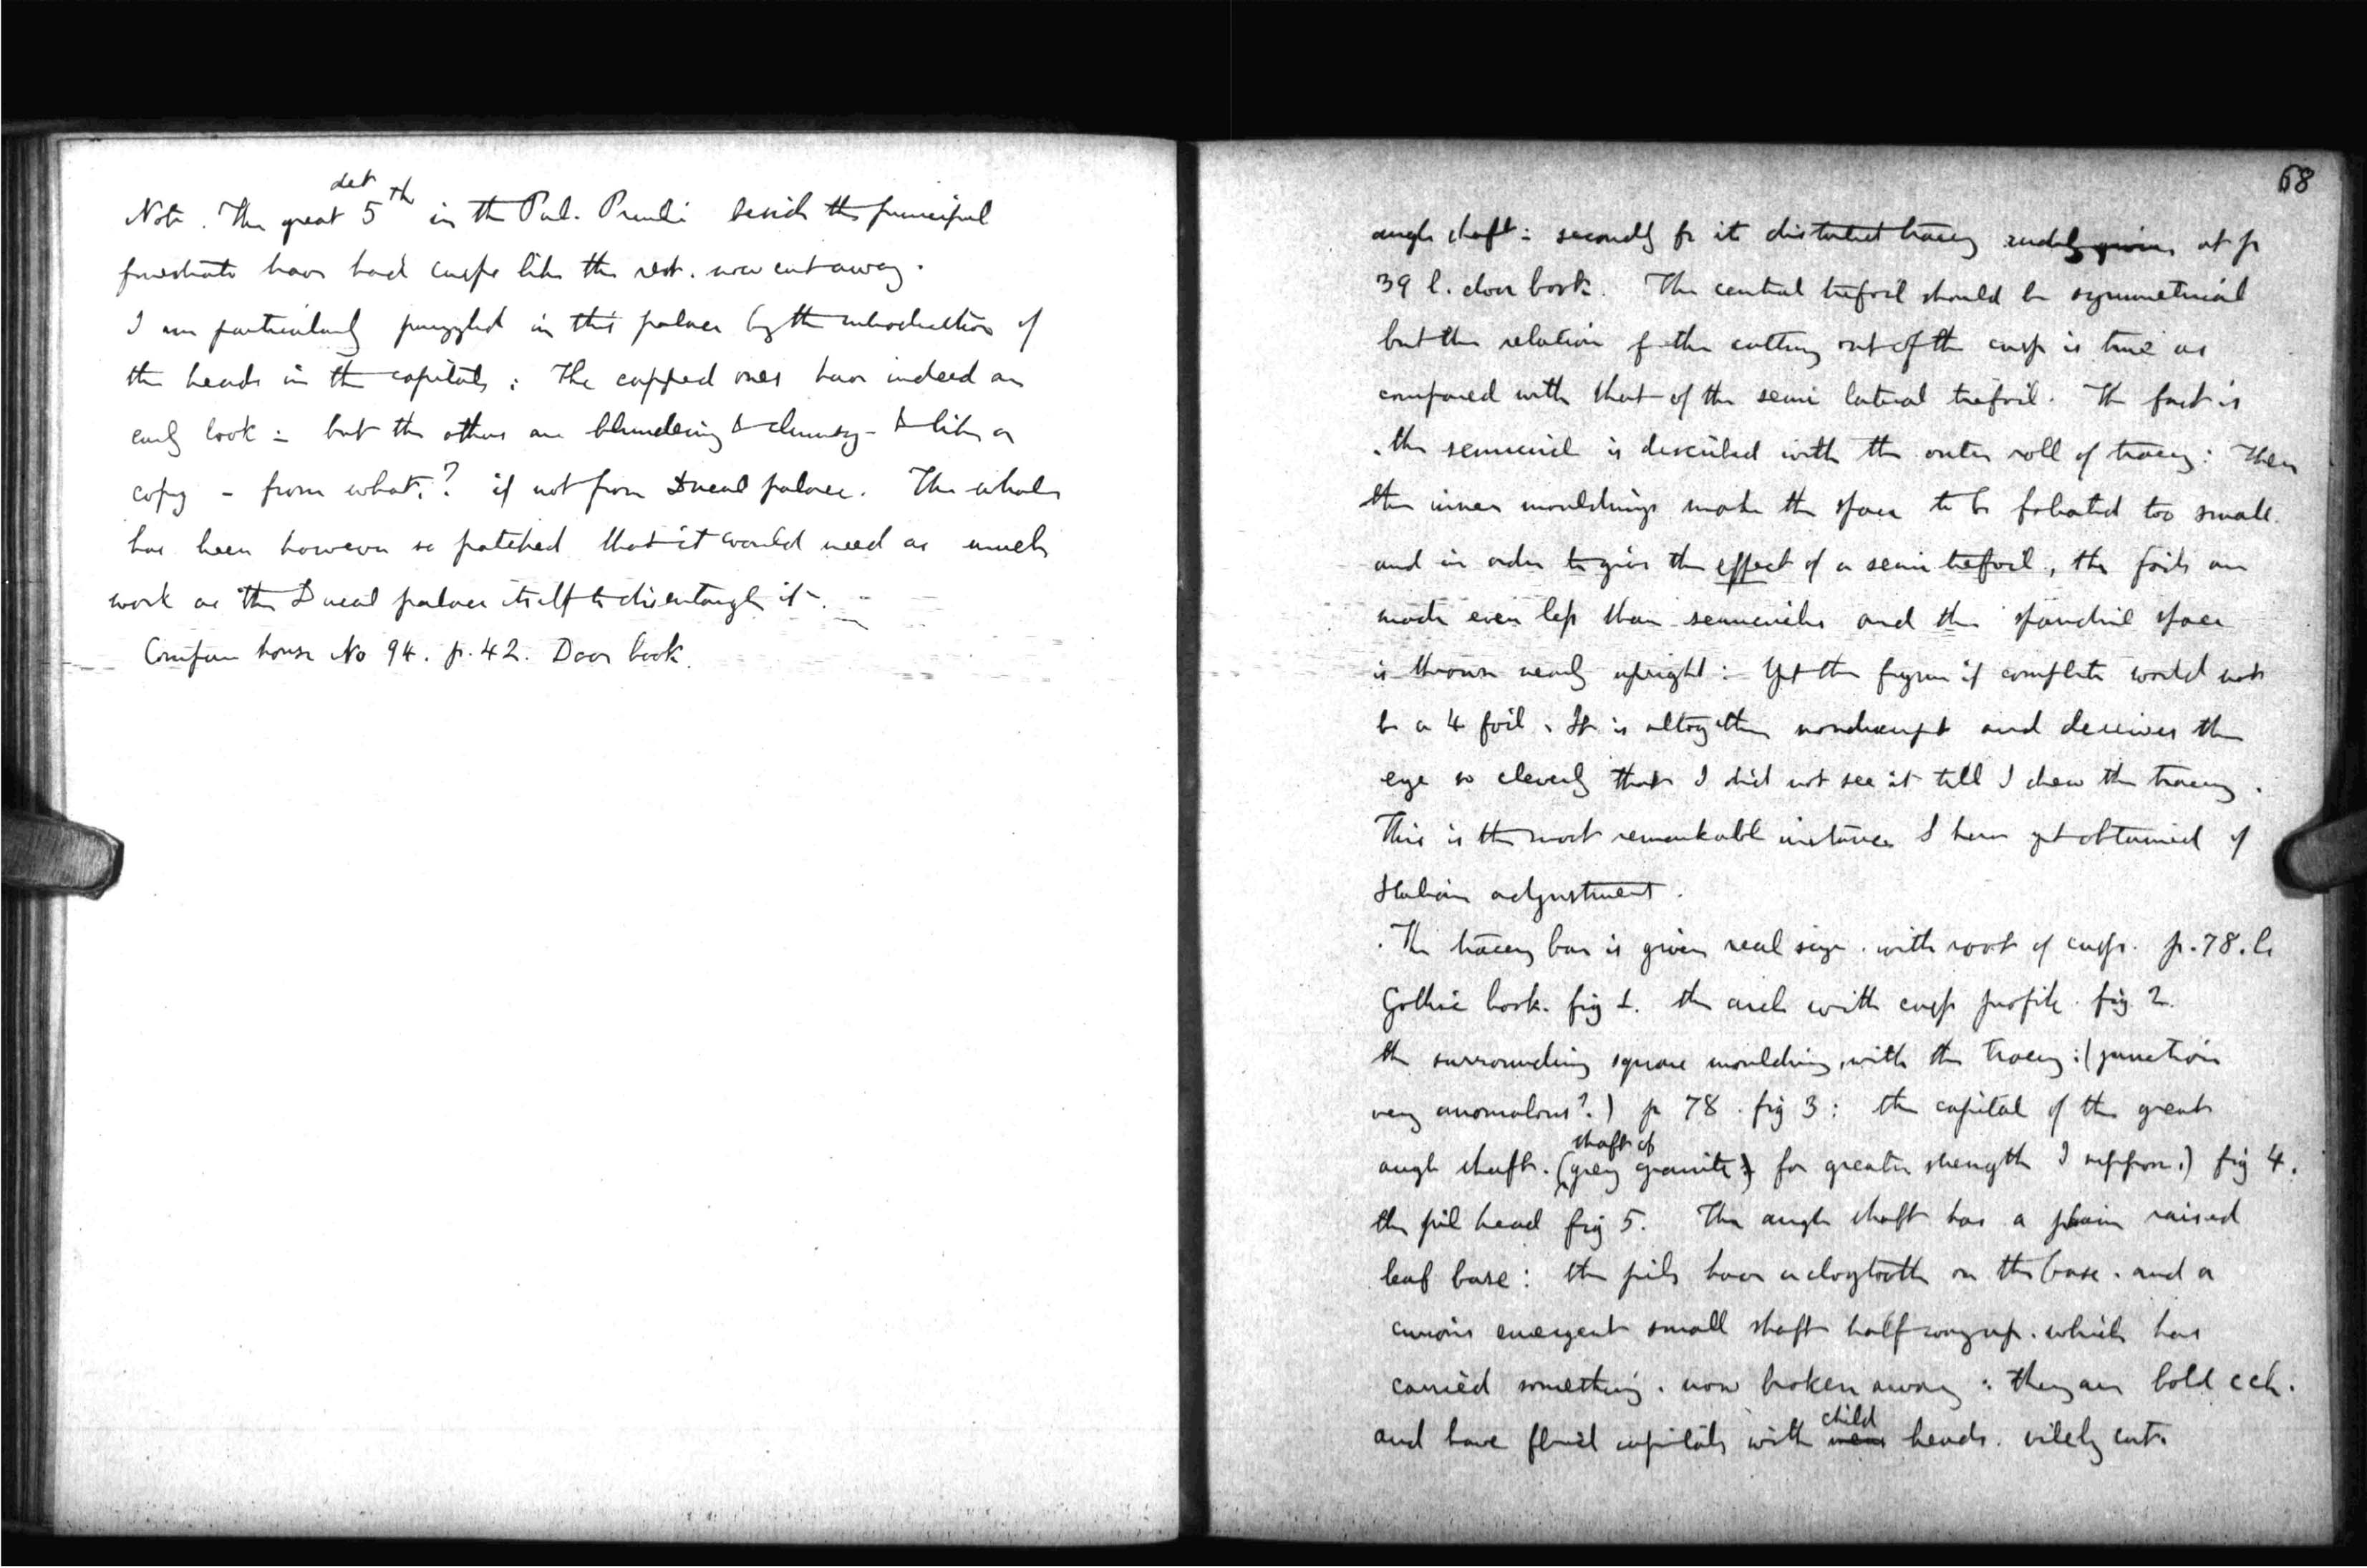 Note. The great det 5th in the Pal. Priuli beside the principal
fenestrate have had cusps like the rest. now cut away.
I am particularly puzzled in this palace by the introduction of
the heads in the capitals: The capped ones have indeed an
early look: but the others are blundering & clumsy - & like a
copy - from what? if not from Ducal palace. The whole
has been however so patched that it would need as much
work as the Ducal palace itself to disentangle it.
Compare house No 94. p. 42. Door book.
68
angle shaft: secondly for its distorted tracery rudely given at p
39 l. door book. The central trefoil should be symmetrical
but the relation of the cutting out of the cusp is true as
compared with that of the semi lateral trefoil. The fact is
the semicircle is described with the outer roll of tracery: Then
the inner mouldings make the space to be foliated too small.
and in order to give the effect of a semi trefoil, the foils are
made even less than semicircles and the spandril space
is thrown nearly upright: Yet the figure if complete would not
be a 4 foil. It is altogether nondescript and deceives the
eye so cleverly that I did not see it till I drew the tracery.
This is the most remarkable instance I have yet obtained of
Italian adjustment.
The tracery bar is given real size. with root of cusp. p. 78. l.
Gothic book. fig 1. the arch with cusp profile. fig 2.
the surrounding square moulding, with the tracery: (junction
very anomalous?.) p 78. fig 3: the capital of the great
angle shaft. (shaft of grey granite for greater strength I suppose.) fig 4.
the pil head fig 5. The angle shaft has a plain raised
leaf base: the pils have a dogtooth on the base. and a
curious emergent small shaft half way up. which has
carried something. now broken away: they are bold cch.
and have florid capitals with child heads. vilely cut.